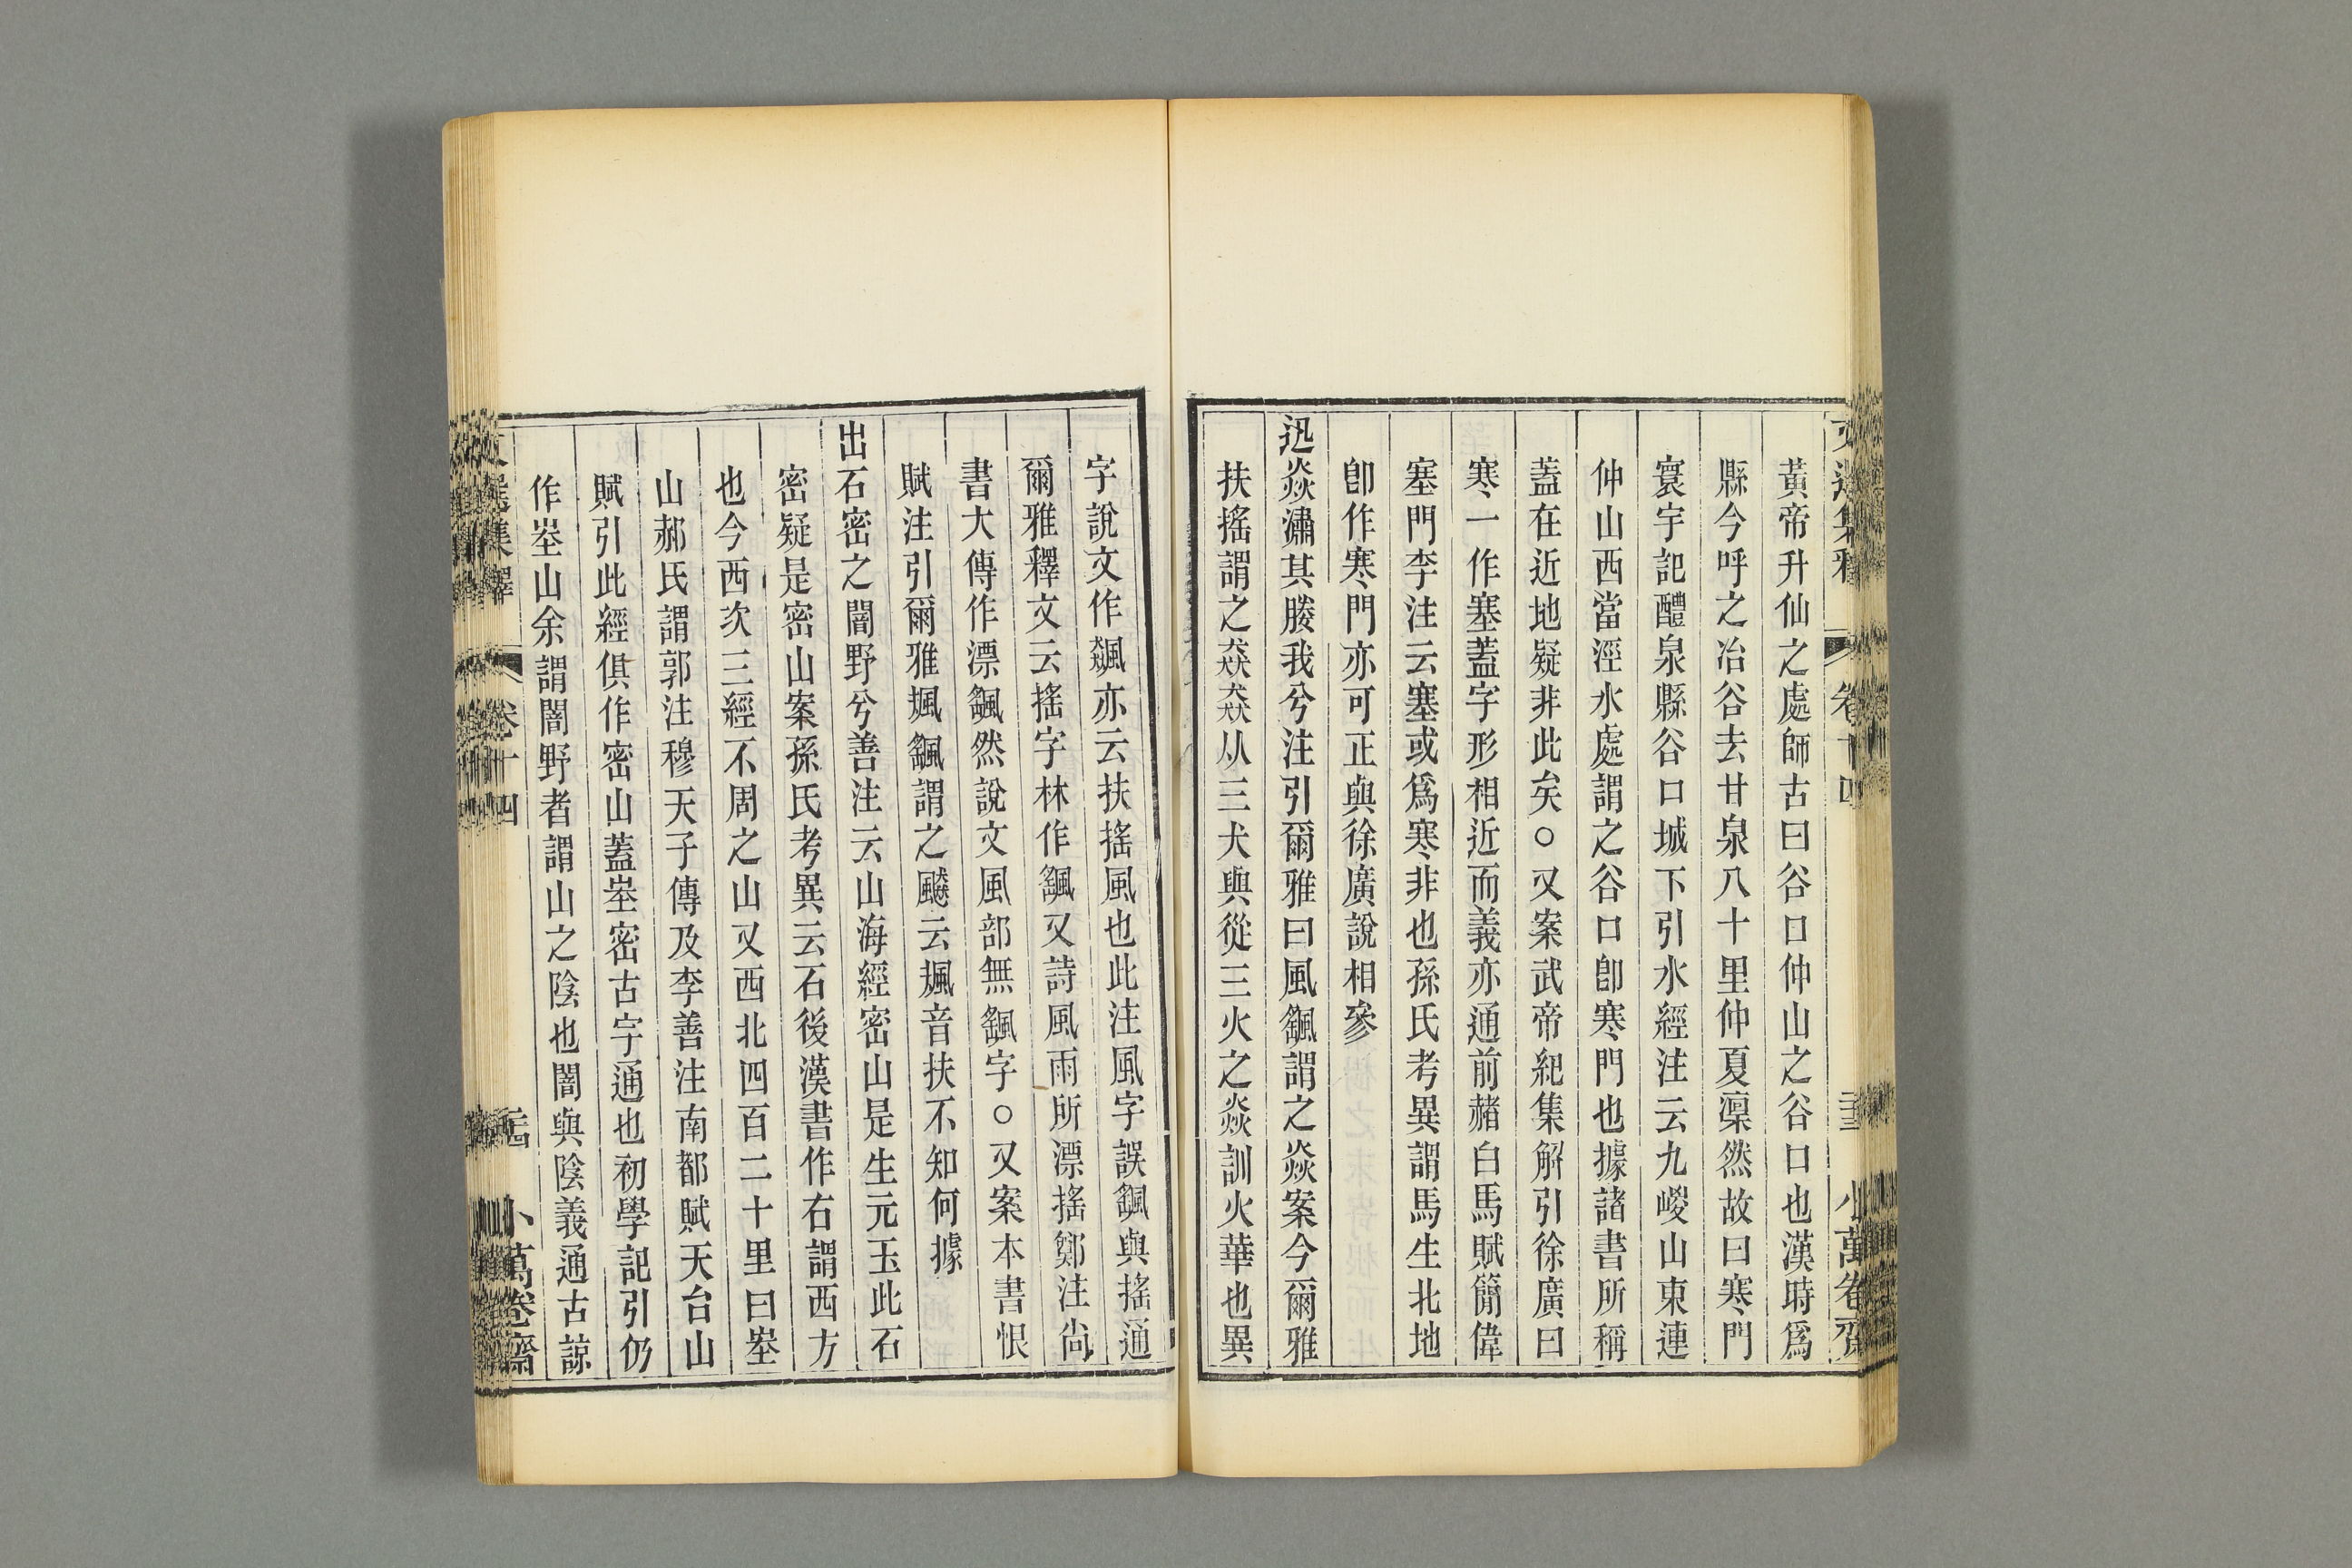 黃帝升仙之處師古曰谷口仲山之谷口也漢時爲
縣今呼之冶谷去甘泉八十里仲夏凜然故曰寒門
寰宇記醴泉縣谷口城下引水經注云九嵕山東連
仲山西當涇水處謂之谷口卽寒門也據諸書所稱
蓋在近地疑非此矣○又案武帝紀集解引徐廣曰
寒一作塞蓋字形相近而義亦通前赭白馬賦簡偉
塞門李注云塞或爲寒非也孫氏考異謂馬生北地
卽作寒門亦可正與徐廣說相參
迅焱潚其媵我兮注引爾雅曰風䬙謂之焱案今爾雅
扶搖謂之猋猋从三犬與從三火之焱訓火華也異
字說文作飆亦云扶搖風也此注風字誤䬙與搖通
爾雅釋文云搖字林作䬙又詩風雨所漂搖鄭注尚
書大傳作漂䬙然說文風部無䬙字○又案本書恨
賦注引爾雅颫䬙謂之飇云颫音扶不知何據
出石密之闇野兮善注云山海經密山是生元玉此石
密疑是密山案孫氏考異云石後漢書作右謂西方
也今西次三經不周之山又西北四百二十里曰峚
山郝氏謂郭注穆天子傳及李善注南都賦天台山
賦引此經俱作密山蓋峚密古字通也初學記引仍
作峚山余謂闇野者謂山之陰也闇與陰義通古諒
文選集釋 卷十四 二十四 小萬卷齋